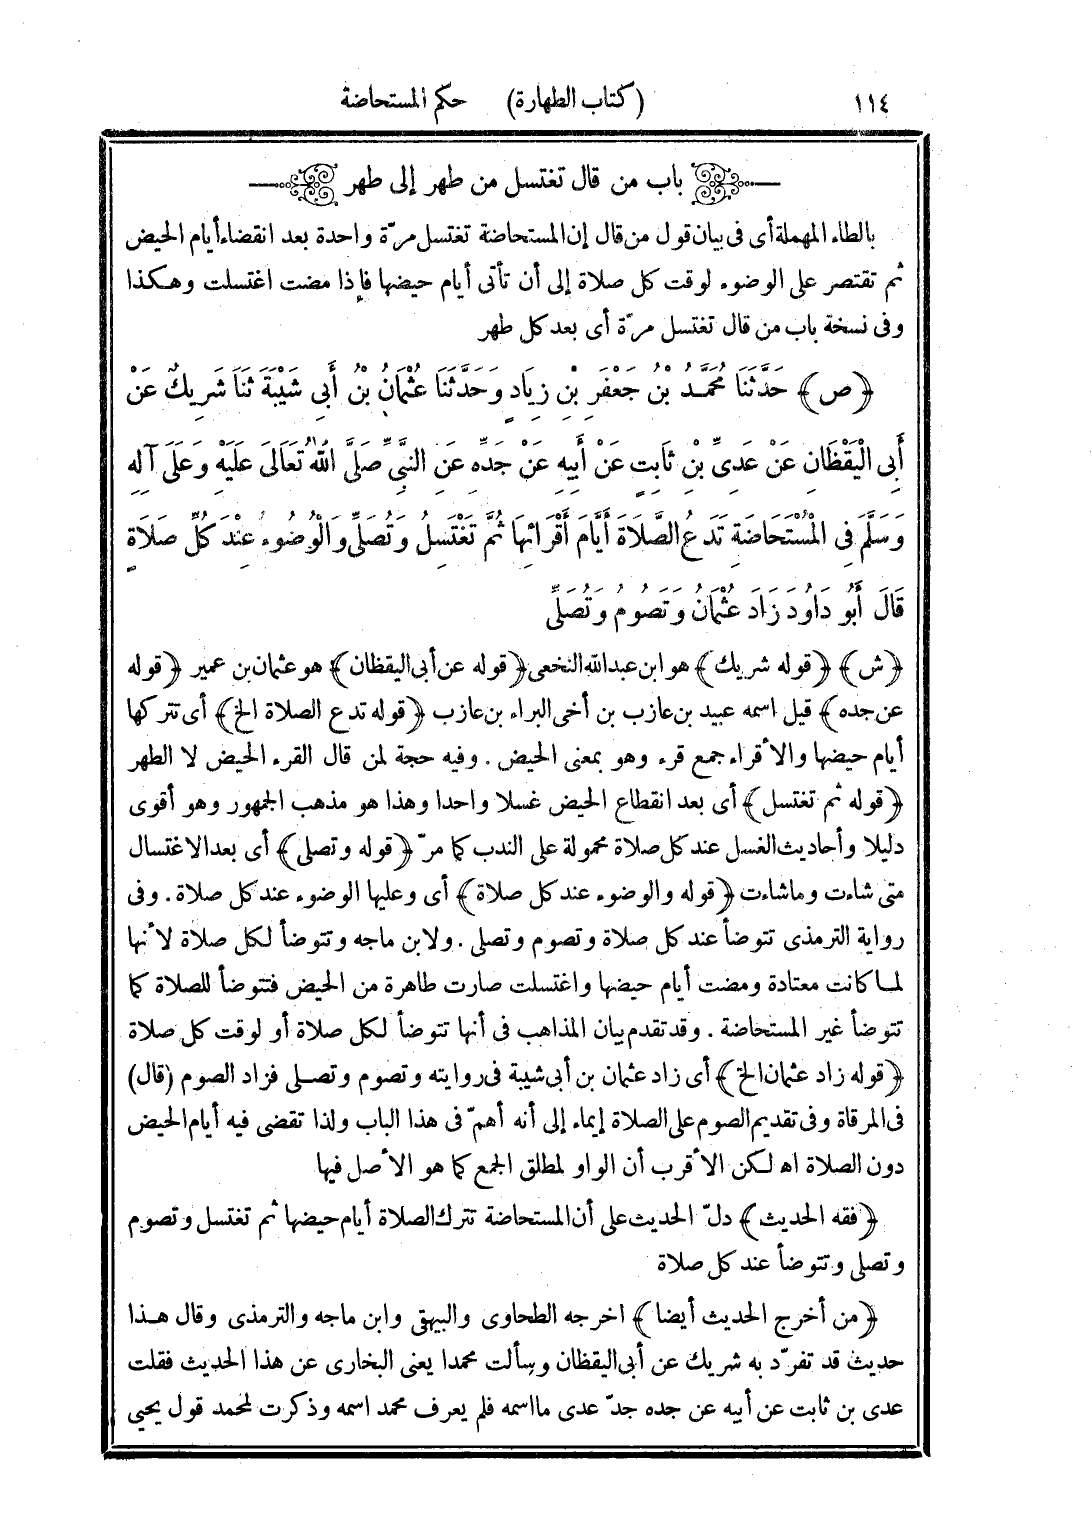 ١١٤ (كتاب الطهارة) حكم المستحاضة
باب من قال تغتسل من طهر إلى طهر
بالطاء المهملة أى فى بيان قول من قال إن المستحاضة تغتسل مرّة واحدة بعد انقضاء أيام الحيض
ثم تقتصر على الوضوء لوقت كل صلاة إلى أن تأتى أيام حيضها فإذا مضت اغتسلت وهكذا
وفى نسخة باب من قال تغتسل مرّة أى بعد كل طهر
﴿ص﴾ حَدَّثَنَا مُحَمَّدُ بْنُ جَعْفَرِ بْنِ زِيَادٍ وَحَدَّثَنَا عُثْمَانُ بْنُ أَبِى شَيْبَةَ ثَنَا شَرِيكٌ عَنْ
أَبِى الْيَقْظَانِ عَنْ عَدِىِّ بْنِ ثَابِتٍ عَنْ أَبِيهِ عَنْ جَدِّهِ عَنِ النَّبِىِّ صَلَّى اللهُ تَعَالَى عَلَيْهِ وَعَلَى آلِهِ
وَسَلَّمَ فِى الْمُسْتَحَاضَةِ تَدَعُ الصَّلَاةَ أَيَّامَ أَقْرَائِهَا ثُمَّ تَغْتَسِلُ وَتُصَلِّى وَالْوُضُوءُ عِنْدَ كُلِّ صَلَاةٍ
قَالَ أَبُو دَاوُدَ زَادَ عُثْمَانُ وَتَصُومُ وَتُصَلِّى
﴿ش﴾ ﴿قوله شريك﴾ هو ابن عبد الله النخعى ﴿قوله عن أبى اليقظان﴾ هو عثمان بن عمير ﴿قوله
عن جده﴾ قيل اسمه عبيد بن عازب بن أخى البراء بن عازب ﴿قوله تدع الصلاة الخ﴾ أى تتركها
أيام حيضها والأقراء جمع قرء وهو بمعنى الحيض . وفيه حجة لمن قال القرء الحيض لا الطهر
﴿قوله ثم تغتسل﴾ أى بعد انقطاع الحيض غسلا واحدا وهذا هو مذهب الجمهور وهو أقوى
دليلا وأحاديث الغسل عند كل صلاة محمولة على الندب كما مرّ ﴿قوله وتصلى﴾ أى بعد الاغتسال
متى شاءت وما شاءت ﴿قوله والوضوء عند كل صلاة﴾ أى وعليها الوضوء عند كل صلاة . وفى
رواية الترمذى تتوضأ عند كل صلاة وتصوم وتصلى . ولابن ماجه وتتوضأ لكل صلاة لأنها
لما كانت معتادة ومضت أيام حيضها واغتسلت صارت طاهرة من الحيض فتتوضأ للصلاة كما
تتوضأ غير المستحاضة . وقد تقدم بيان المذاهب فى أنها تتوضأ لكل صلاة أو لوقت كل صلاة
﴿قوله زاد عثمان الخ﴾ أى زاد عثمان بن أبى شيبة فى روايته وتصوم وتصلى فزاد الصوم (قال)
فى المرقاة وفى تقديم الصوم على الصلاة إيماء إلى أنه أهمّ فى هذا الباب ولذا تقضى فيه أيام الحيض
دون الصلاة اه لكن الأقرب أن الواو لمطلق الجمع كما هو الأصل فيها
﴿فقه الحديث﴾ دلّ الحديث على أن المستحاضة تترك الصلاة أيام حيضها ثم تغتسل وتصوم
وتصلى وتتوضأ عند كل صلاة
﴿من أخرج الحديث أيضا﴾ اخرجه الطحاوى والبيهقى وابن ماجه والترمذى وقال هذا
حديث قد تفرّد به شريك عن أبى اليقظان وسألت محمدا يعنى البخارى عن هذا الحديث فقلت
عدى بن ثابت عن أبيه عن جده جدّ عدى ما اسمه فلم يعرف محمد اسمه وذكرت لمحمد قول يحيى